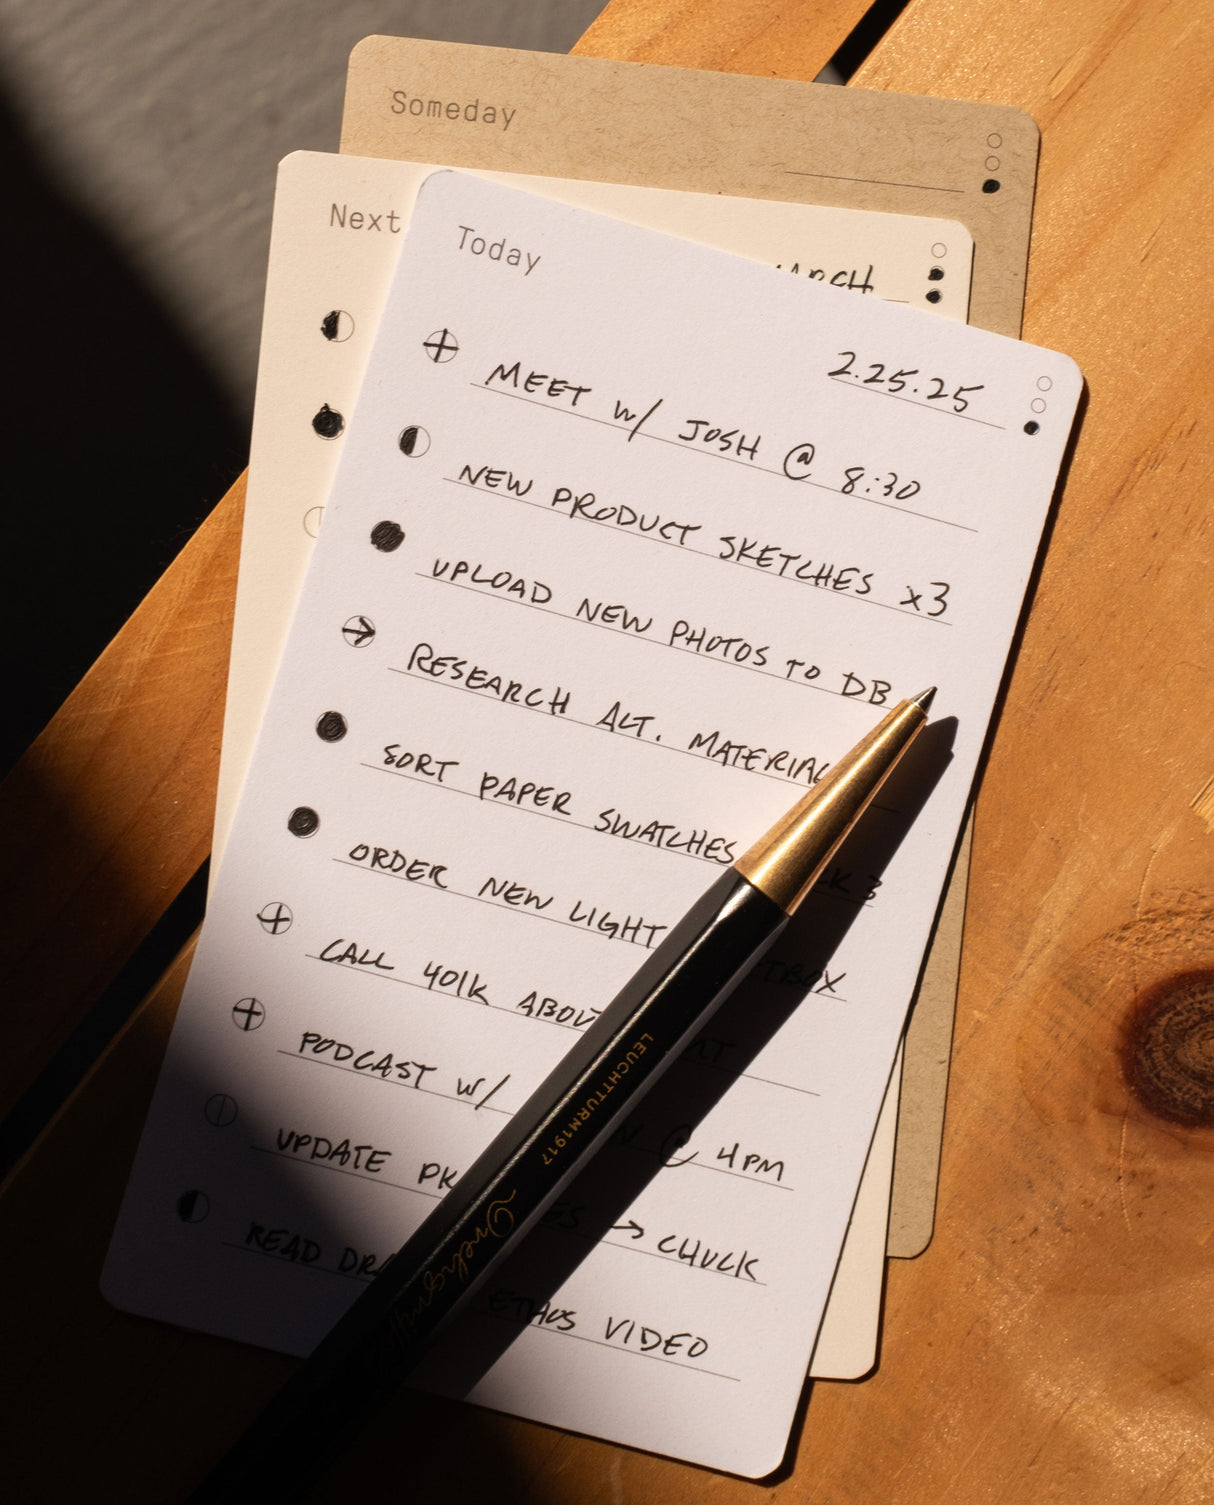 Someday
Next
Today
2.25.25
MEET W/ JOSH @ 8:30
NEW PRODUCT SKETCHES x3
UPLOAD NEW PHOTOS TO DB
RESEARCH ALT. MATERIAL
SORT PAPER SWATCHES 3
ORDER NEW LIGHT
CALL 401K
PODCAST W/ @ 4PM
UPDATE → CHUCK
READ VIDEO
LEUCHTTURM1917